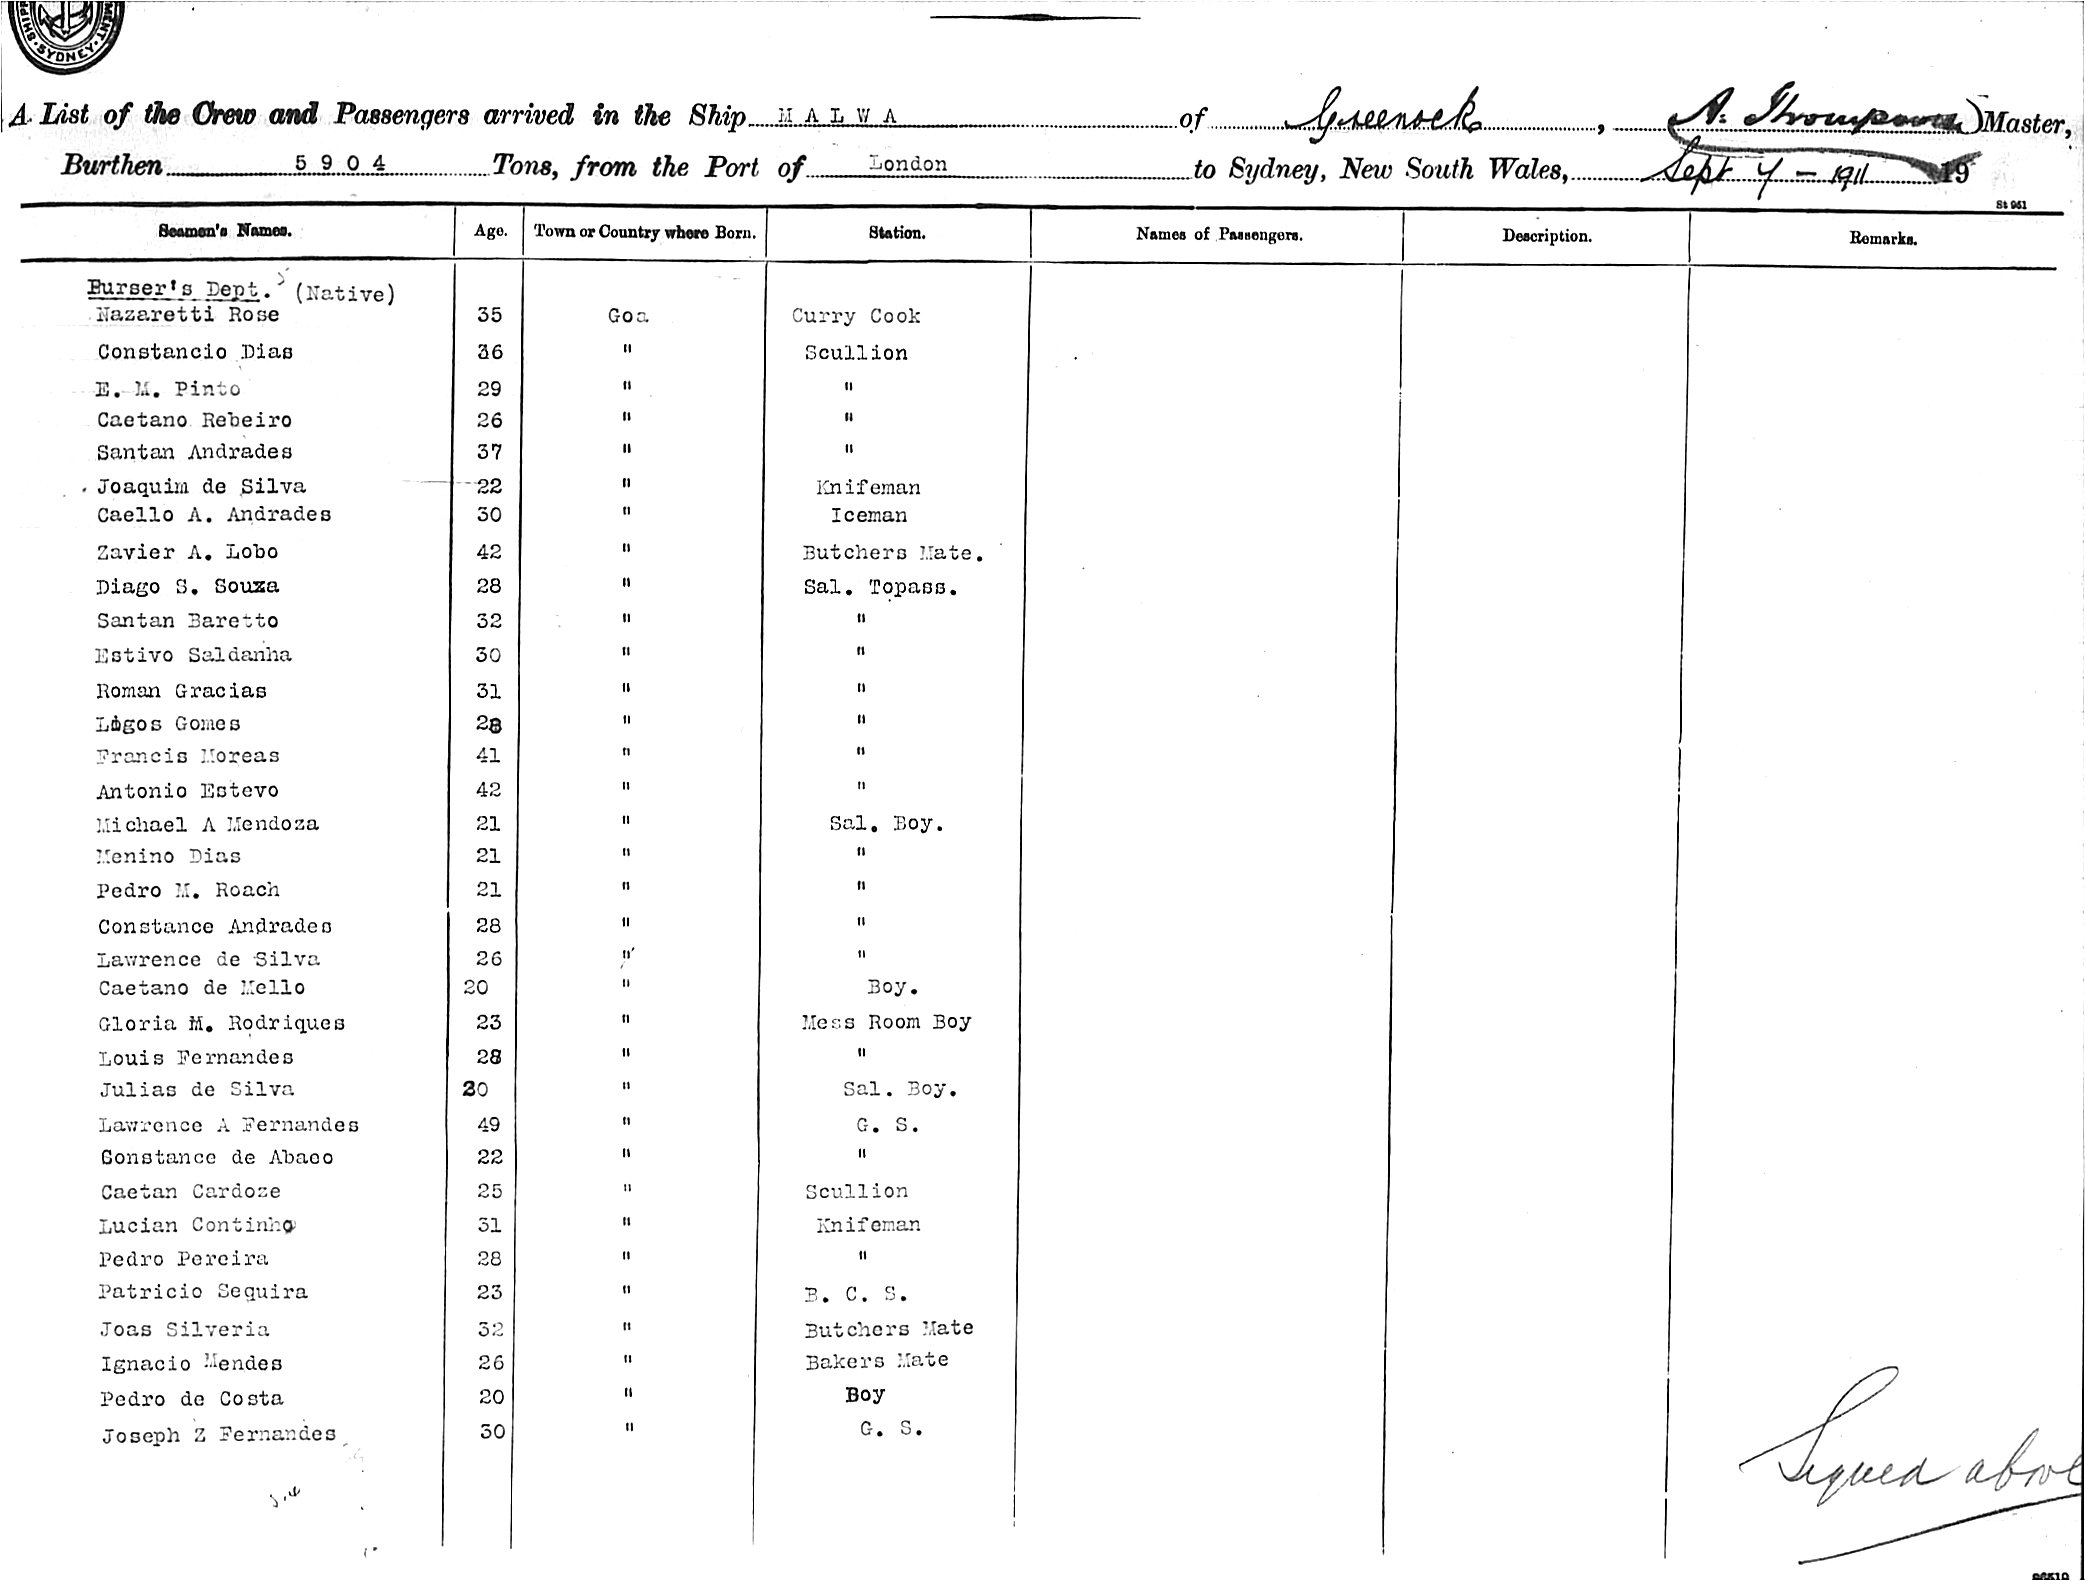 SHIP MENT SYDNEY
A List of the Crew and Passengers arrived in the Ship MALWA of Greenock, A. Thompson Master,
Burthen 5904 Tons, from the Port of London to Sydney, New South Wales, Sept 7 - 1911 19
St 961
Seamen's Names. Age. Town or Country where Born. Station. Names of Passengers. Description. Remarks.
Purser's Dept. (Native)
Nazaretti Rose 35 Goa Curry Cook
Constancio Dias 36 " Scullion
E. M. Pinto 29 " "
Caetano Rebeiro 26 " "
Santan Andrades 37 " "
Joaquim de Silva 22 " Knifeman
Caello A. Andrades 30 " Iceman
Zavier A. Lobo 42 " Butchers Mate.
Diago S. Souza 28 " Sal. Topass.
Santan Baretto 32 " "
Estivo Saldanha 30 " "
Roman Gracias 31 " "
Gomes 28 " "
Francis Moreas 41 " "
Antonio Estevo 42 " "
Michael A Mendoza 21 " Sal. Boy.
Menino Dias 21 " "
Pedro M. Roach 21 " "
Constance Andrades 28 " "
Lawrence de Silva 26 " "
Caetano de Mello 20 " Boy.
Gloria M. Rodriques 23 " Mess Room Boy
Louis Fernandes 28 " "
Julias de Silva 20 " Sal. Boy.
Lawrence A Fernandes 49 " G. S.
Constance de Abaeo 22 " "
Caetan Cardoze 25 " Scullion
Lucian Continho 31 " Knifeman
Pedro Pereira 28 " "
Patricio Sequira 23 " B. C. S.
Joas Silveria 32 " Butchers Mate
Ignacio Mendes 26 " Bakers Mate
Pedro de Costa 20 " Boy
Joseph Z Fernandes 30 " G. S.
Signed above